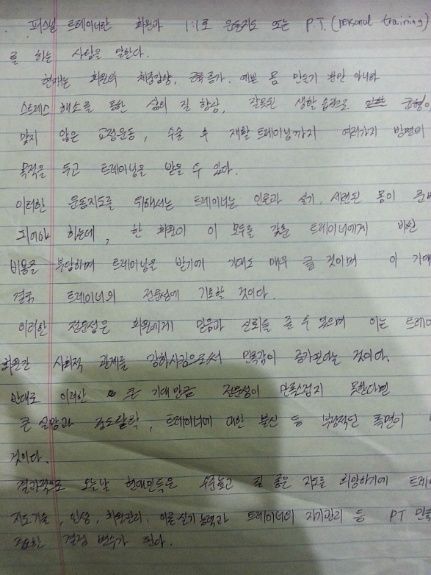 퍼스널 트레이너란 회원과 1:1로 운동지도 또는 P.T.(personal training)
를 하는 사람을 말한다.
현재는 회원의 체중감량, 근육증가, 예쁜 몸 만들기 뿐만 아니라
스트레스 해소를 통한 삶의 질 향상, 잘못된 생활습관으로 균형이
맞지 않은 교정운동, 수술 후 재활트레이닝까지 여러가지 방면의
목적을 두고 트레이닝을 받을 수 있다.
이러한 운동지도를 위해서는 트레이너는 이론과 실기, 시련된 몸이 준비
되어야 하는데, 한 회원이 이 모두를 갖춘 트레이너에게 비싼
비용을 부담하며 트레이닝을 받기에 기대도 매우 클 것이며 이 기대
결국 트레이너의 전문성에 기초할 것이다.
이러한 전문성은 회원에게 믿음과 신뢰를 줄 수 있으며 이는 트레이
회원간 사회적 관계를 강화시킴으로써 만족감이 증가된다는 것이다.
반대로 이러한 큰 기대만큼 전문성이 만족스럽지 못한다면
큰 실망과 트레이너에 대한 불신 등 부정적인 측면이
것이다.
결과적으로 오늘날 현대인들은 수준높고 질 좋은 지도를 희망하기에 트레
지도기술, 인성, 회원관리, 이론실기능력과 트레이너의 자기관리 등 P.T 만족
중요한 결정 변수가 된다.